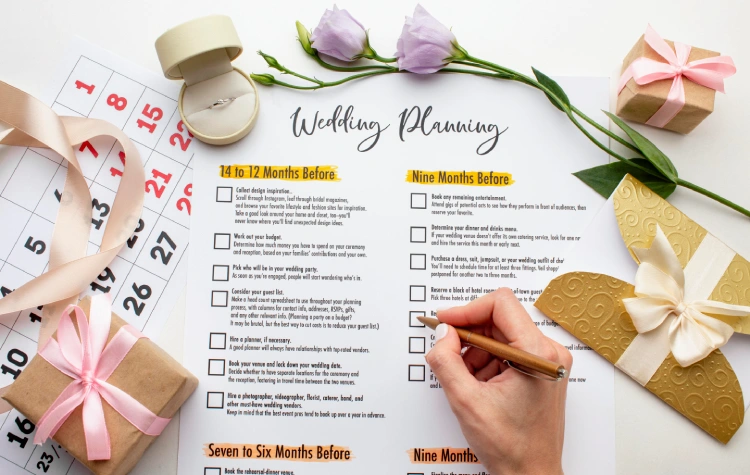 Wedding Planning
14 to 12 Months Before
Collect design inspiration.
Scroll through Instagram, leaf through bridal magazines,
and browse your favorite lifestyle and fashion sites for inspiration.
Take a good look around your home and closet, too–you'll
never know where you'll find unexpected design cues.
Work out your budget.
Determine how much money you have to spend on your ceremony
and reception, based on your families' contributions and your own.
Pick who will be in your wedding party.
As soon as you're engaged, people will start wondering who's in.
Consider your guest list.
Make a head count spreadsheet to use throughout your planning
process, with columns for contact info, addresses, RSVPs, gifts, and
any other relevant info. (Planning a party on a budget?
It may be brutal, but the best way to cut costs is to reduce your guest list.)
Hire a planner, if necessary.
A good planner will always have relationships with top-rated vendors.
Book your venue and lock down your wedding date.
Decide whether to have separate locations for the ceremony and
the reception, factoring in travel time between the two venues.
Hire a photographer, videographer, florist, caterer, band, and
other must-have wedding vendors.
Keep in mind that the best event pros tend to book up over a year in advance.
Seven to Six Months Before
Book the rehearsal-dinner venue.
Nine Months Before
Book any remaining entertainment.
Attend gigs of potential acts to see how they perform in front of audiences, than
reserve your favorite.
Determine your dinner and drinks menu.
If your wedding venue doesn't offer its own catering service, look for one
and hire the service this month or early next.
Purchase a dress, suit, jumpsuit, or your wedding outfit of
You'll need to schedule time for at least three fittings. Veil
postponed for another two to three months.
Reserve a block of hotel guest
Pick three hotels at
If
Nine Months
Finalize the menu and
1
8
15
22
7
14
21
29
28
5
20
27
19
26
12
10
16
23/